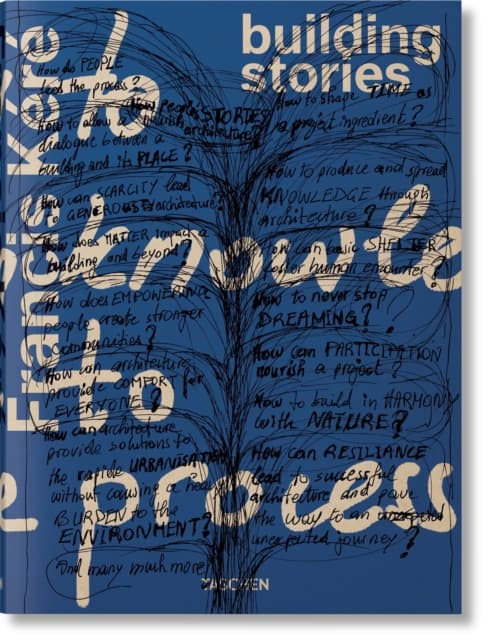 building
stories
Francis Kéré
to
knowle
to
process
How do PEOPLE
lead the process?
How to allow a
dialogue between a
building and its PLACE?
How can SCARCITY lead
a GENEROUS architecture?
How does MATTER impact a
building and beyond?
How does EMPOWERING
people create stronger
communities?
How can architecture
provide COMFORT for
EVERYONE?
How can architecture
provide solutions to
the rapide URBANISATION
without causing a heavy
BURDEN to the
ENVIRONMENT?
And many much more
How people's STORIES
nourish
architecture?
How to shape TIME as
a project ingredient?
How to produce and spread
KNOWLEDGE through
Architecture?
How can basic SHELTER
foster human encounter?
How to never stop
DREAMING?
How can PARTICIPATION
nourish a project?
How to build in HARMONY
with NATURE?
How can RESILIANCE
lead to successful
architecture and pave
the way to an
unexpected journey?
TASCHEN